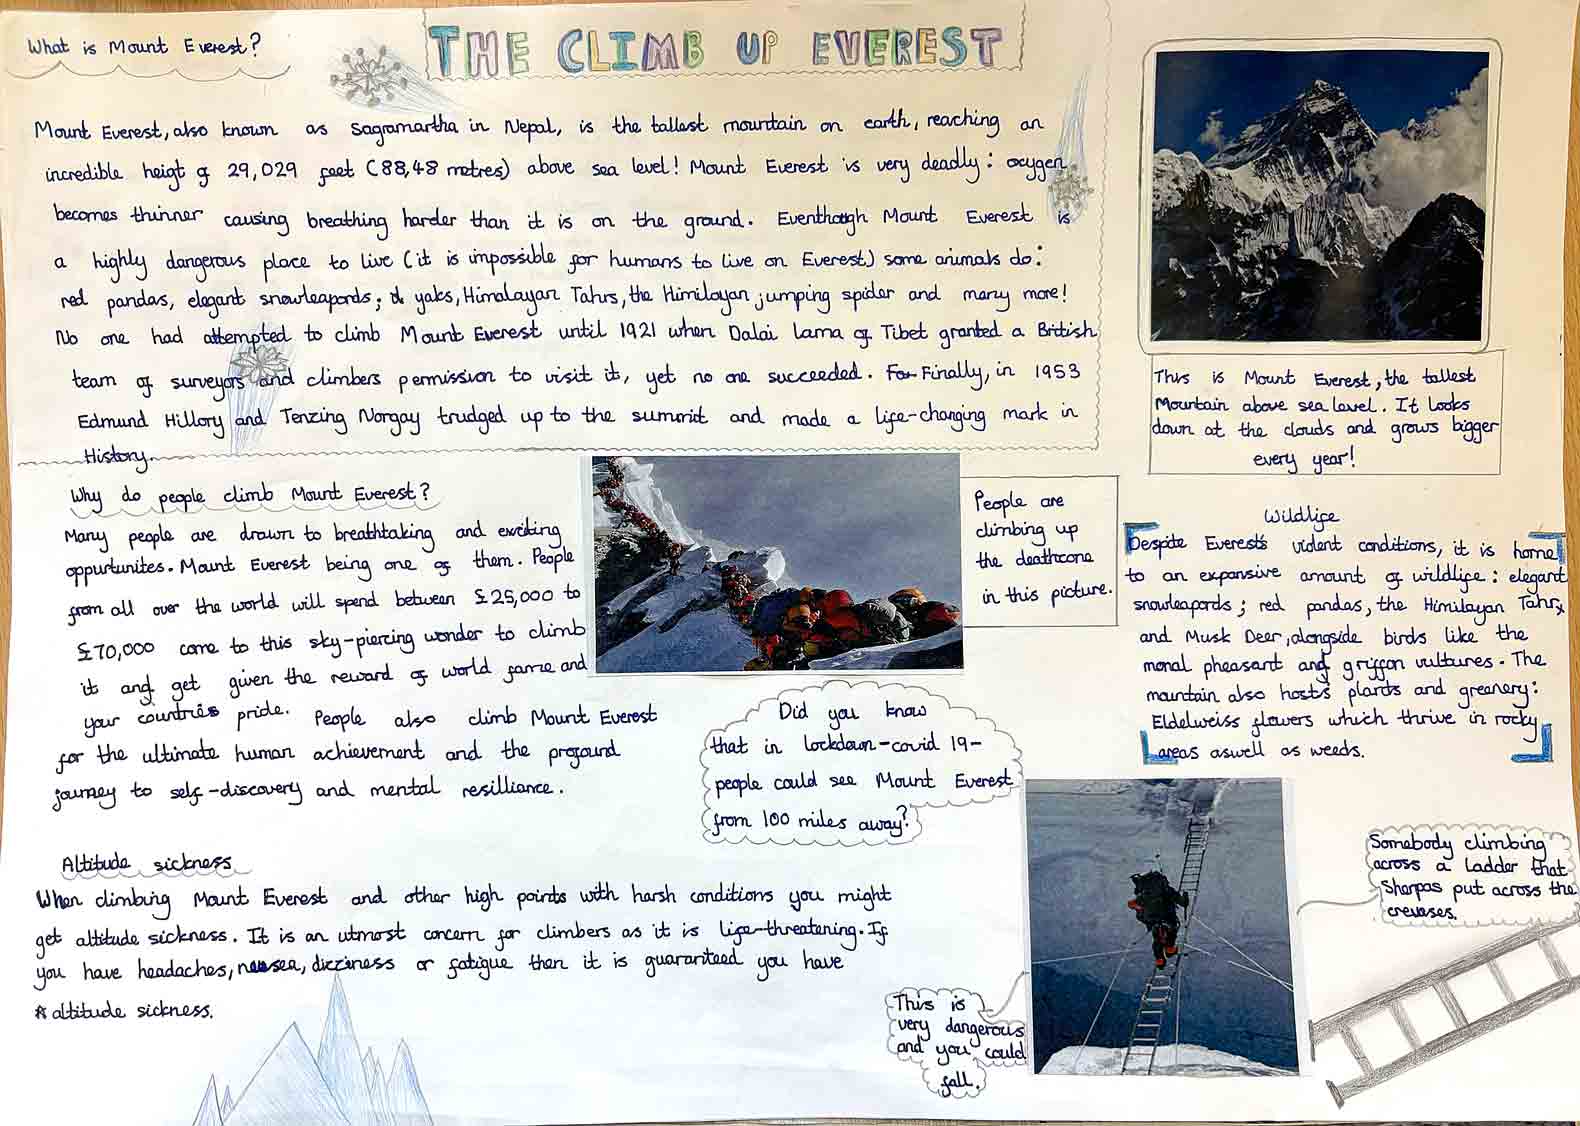 THE CLIMB UP EVEREST
What is Mount Everest?
Mount Everest, also known as Sagramartha in Nepal, is the tallest mountain on earth, reaching an
incredible heigt of 29,029 feet (88,48 metres) above sea level! Mount Everest is very deadly: oxygen
becomes thinner causing breathing harder than it is on the ground. Eventhough Mount Everest is
a highly dangerous place to live (it is impossible for humans to live on Everest) some animals do:
red pandas, elegant snowleapords; yaks, Himalayan Tahrs, the Himilayan jumping spider and many more!
No one had attempted to climb Mount Everest until 1921 when Dalai Lama of Tibet granted a British
team of surveyors and climbers permission to visit it, yet no one succeeded. Finally, in 1953
Edmund Hillory and Tenzing Norgay trudged up to the summit and made a life-changing mark in
History.
This is Mount Everest, the tallest
Mountain above sea level. It looks
down at the clouds and grows bigger
every year!
Why do people climb Mount Everest?
Many people are drawn to breathtaking and exciting
oppurtunites. Mount Everest being one of them. People
from all over the world will spend between £25,000 to
£70,000 come to this sky-piercing wonder to climb
it and get given the reward of world fame and
your countries pride. People also climb Mount Everest
for the ultimate human achievement and the profound
journey to self-discovery and mental resilliance.
People are
climbing up
the deathcone
in this picture.
Wildlife
Despite Everest's violent conditions, it is home
to an expansive amount of wildlife: elegant
snowleapords; red pandas, the Himilayan Tahr,
and Musk Deer, alongside birds like the
monal pheasant and griffon vultures. The
mountain also hosts plants and greenery:
Eldelweiss flowers which thrive in rocky
areas aswell as weeds.
Did you know
that in lockdown-covid 19-
people could see Mount Everest
from 100 miles away?
Altitude sickness
When climbing Mount Everest and other high points with harsh conditions you might
get altitude sickness. It is an utmost concern for climbers as it is life-threatening. If
you have headaches, neasea, dizziness or fatigue then it is guaranteed you have
altitude sickness.
Somebody climbing
across a ladder that
Sherpas put across the
crevases.
This is
very dangerous
and you could
fall.